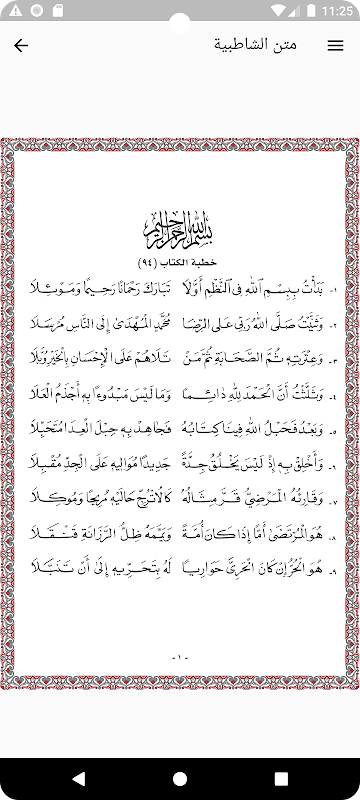 11:25
متن الشاطبية
بسم الله الرحمن الرحيم
خطبة الكتاب (٩٤)
١- بَدَأْتُ بِبِسْمِ اللهِ فِي النَّظْمِ أَوَّلَا تَبَارَكَ رَحْمَانًا رَحِيمًا وَمَوْئِلَا
٢- وَثَنَّيْتُ صَلَّى اللهُ رَبِّي عَلَى الرِّضَا مُحَمَّدٍ الْمُهْدَى إِلَى النَّاسِ مُرْسَلَا
٣- وَعِتْرَتِهِ ثُمَّ الصَّحَابَةِ ثُمَّ مَنْ تَلَاهُمْ عَلَى الْإِحْسَانِ بِالْخَيْرِ وُبَّلَا
٤- وَثَلَّثْتُ أَنَّ الْحَمْدَ لِلهِ دَائِمًا وَمَا لَيْسَ مَبْدُوءًا بِهِ أَجْذَمُ الْعَلَا
٥- وَبَعْدُ فَحَبْلُ اللهِ فِينَا كِتَابُهُ فَجَاهِدْ بِهِ حِبْلَ الْعِدَا مُتَحَبِّلَا
٦- وَأَخْلِقْ بِهِ إِذْ لَيْسَ يَخْلُقُ جِدَّةً جَدِيدًا مُوَالِيهِ عَلَى الْجِدِّ مُقْبِلَا
٧- وَقَارِئُهُ الْمَرْضِيُّ قَرَّ مِثَالُهُ كَالْاُتْرُجِّ حَالَيْهِ مُرِيحًا وَمُوكِلَا
٨- هُوَ الْمُرْتَضَى أَمًّا إِذَا كَانَ أُمَّةً وَيَمَّمَهُ ظِلُّ الرَّزَانَةِ قَنْقَلَا
٩- هُوَ الْحُرُّ إِنْ كَانَ الْحَرِيَّ حَوَارِيًا لَهُ بِتَحَرِّيهِ إِلَى أَنْ تَنَبَّلَا
-١-